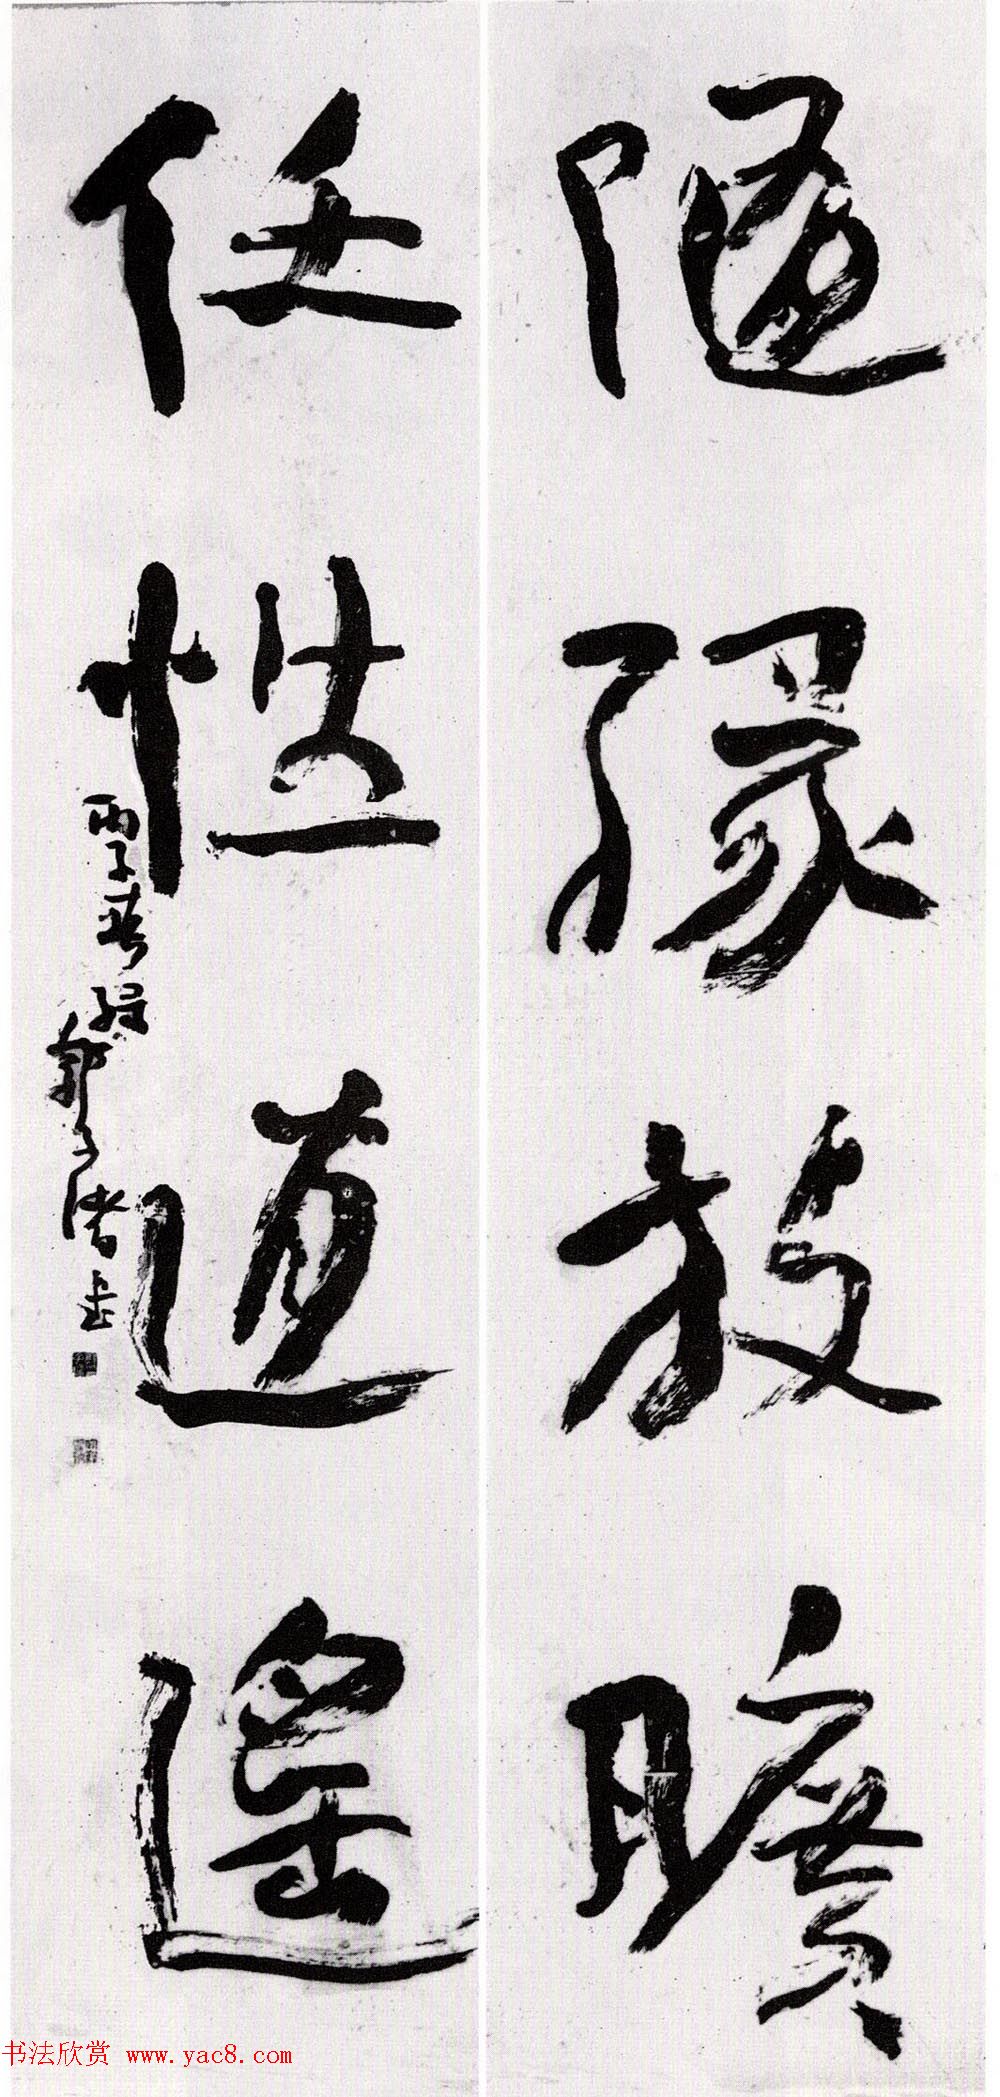 隨緣放曠
任性逍遙
丙子暮春 郭子緒書
书法欣赏 www.yac8.com